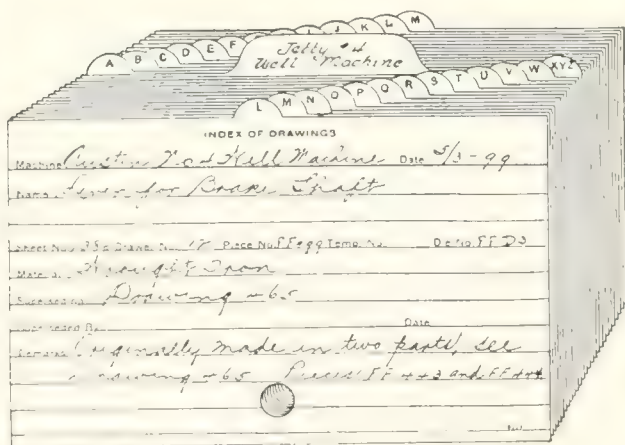 I J K L M
A B C D E F
Jelly #4
Well Machine
L M N O P Q R S T U V W XYZ
INDEX OF DRAWINGS
Machine Austin No 4 Well Machine Date 5/3-99
Name Lever for Brake Shaft
Sheet No. Draw. No. Piece No. FF499 Temp. No. De No. FFD3
Material Wrought Iron
Superseding Drawing #65
Superseded By Date
Remarks Originally made in two parts, see
Drawing #65 Pieces FF443 and FF444